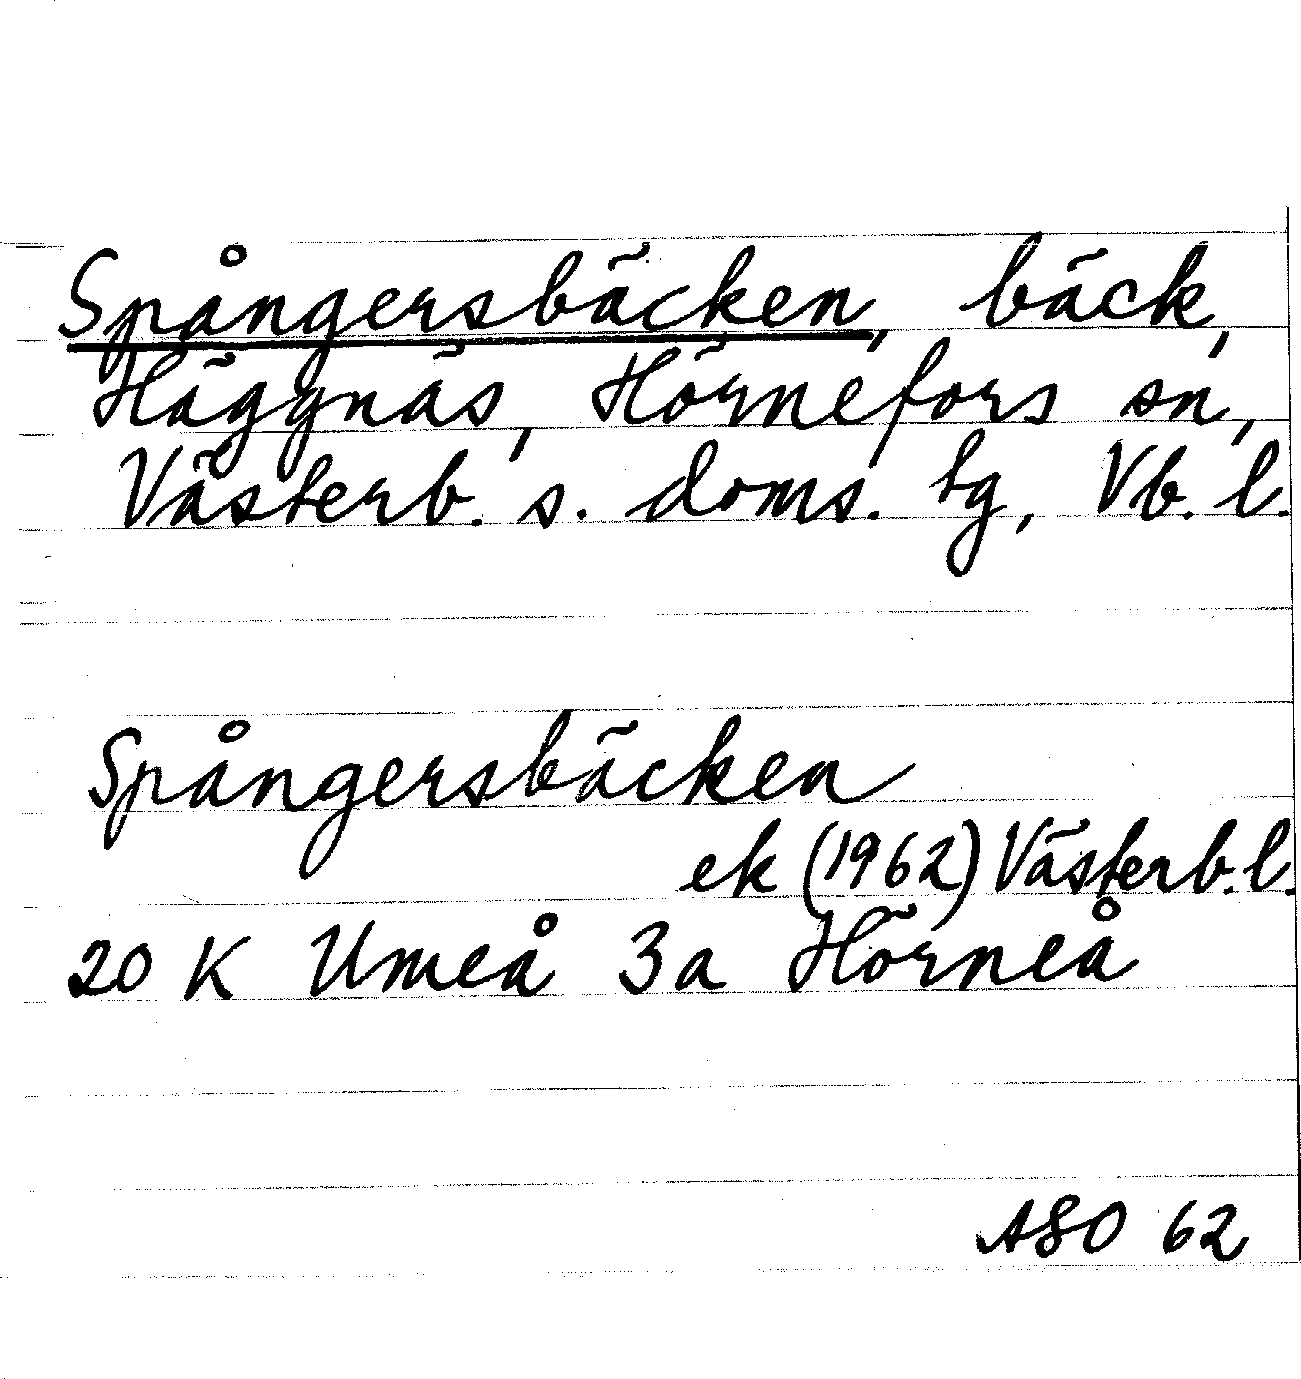 Spångersbäcken, bäck,
Häggnäs, Hörnefors sn,
Västerb. s. doms. tg, Vb. l.
Spångersbäcken
ek (1962) Västerb. l.
20 K Umeå 3a Hörneå
ASO 62